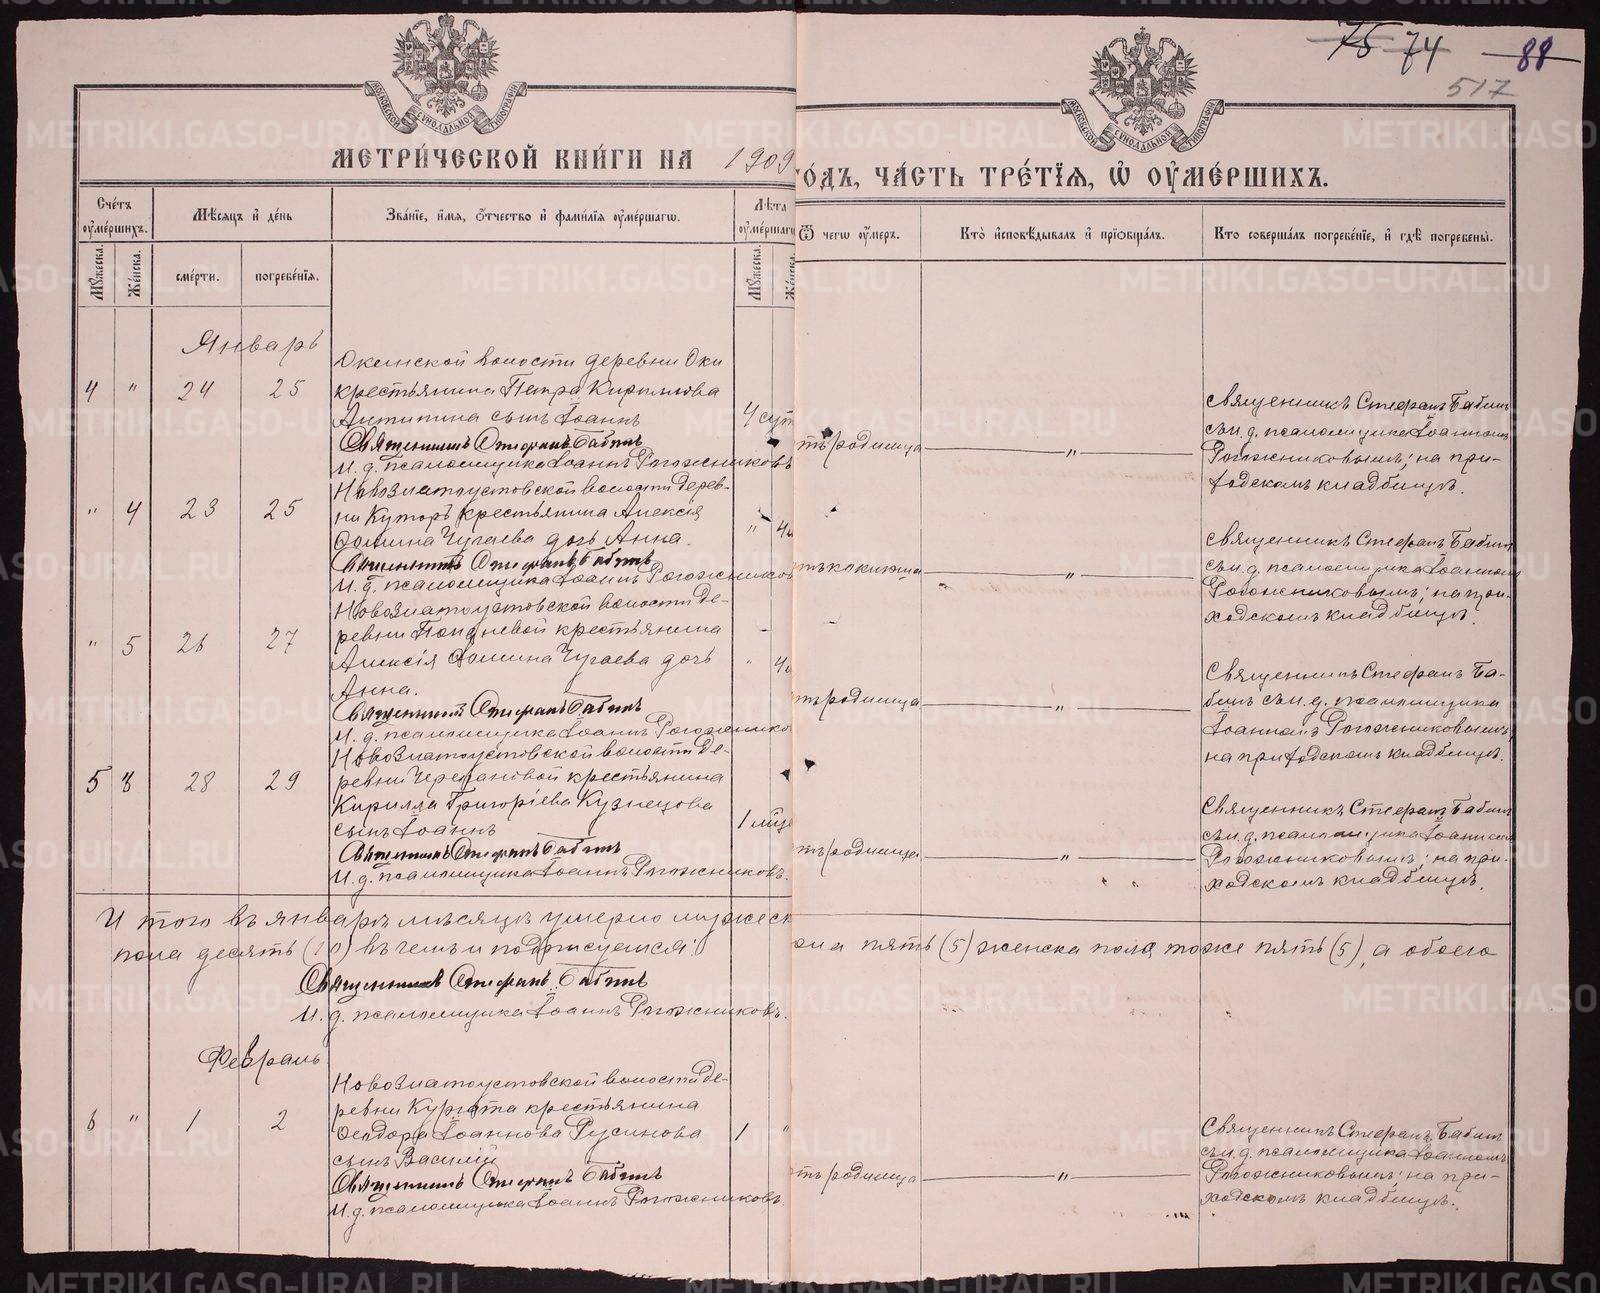 75 74 88
517
МОСКОВСКОЙ СѴНОДАЛЬНОЙ ТИПОГРАФІИ
МОСКОВСКОЙ СѴНОДАЛЬНОЙ ТИПОГРАФІИ
МЕТРИ́ЧЕСКОЙ КНИ́ГИ НА 1909
ГО́ДЪ, ЧА́СТЬ ТРЕ́ТІѦ, Ѡ҆ ОУ҆МЕ́РШИХЪ.
Сче́тъ оу҆ме́ршихъ.
Мѣ́сяцъ и҆ де́нь
Зва́ніе, и҆́мя, ѻ҆́тчество и҆ фами́лія оу҆ме́ршагѡ.
Лѣ́та оу҆ме́ршаг
Ѿ чегѡ оу҆́меръ.
Кто̀ и҆сповѣ́дывалъ и҆ прїѻбща́лъ.
Кто соверша́лъ погребе́ніе, и҆ гдѣ̀ погребены̀.
Мꙋ́жеска.
Же́нска.
сме́рти.
погребе́нія.
Мꙋ́жеска.
Же́нска.
Январь
Окинской волости деревни Оки
4 " 24 25 крестьянина Петра Кириллова
Антипина сынъ Іоаннъ 4 сут
Священникъ Стефанъ Бабинъ
И. д. псаломщика Іоаннъ Рогожниковъ
отъ родимца "
Священникъ Стефанъ Бабинъ
съ и. д. псаломщика Іоанномъ
Рогожниковымъ; на при-
ходскомъ кладбищѣ.
Новозлатоустовской волости дерев-
" 4 23 25 ни Куторъ крестьянина Алексія
Ѳомина Чугаева дочь Анна. "
Священникъ Стефанъ Бабинъ
И. д. псаломщика Іоаннъ Рогожников
отъ коклюша "
Священникъ Стефанъ Бабинъ
съ и. д. псаломщика Іоанномъ
Рогожниковымъ; на при-
ходскомъ кладбищѣ.
Новозлатоустовской волости де-
" 5 26 27 ревни крестьянина
Алексія Ѳомина Чугаева дочь "
Анна.
Священникъ Стефанъ Бабинъ
И. д. псаломщика Іоаннъ Рогожнико
отъ родимца "
Священникъ Стефанъ Ба-
бинъ съ и. д. псаломщика
Іоанномъ Рогожниковымъ,
на приходскомъ кладбищѣ.
Новозлатоустовской волости де-
5 " 28 29 ревни Черепановой крестьянина
Кирилла Григоріева Кузнецова
сынъ Іоаннъ 1 мѣс
Священникъ Стефанъ Бабинъ
И. д. псаломщика Іоаннъ Рогожниковъ.
отъ родимца "
Священникъ Стефанъ Бабинъ
съ и. д. псаломщика Іоанномъ
Рогожниковымъ; на при-
ходскомъ кладбищѣ.
Итого въ январѣ мѣсяцѣ умерло мужеск
ола пять (5) женска пола тоже пять (5), а обоего
пола десять (10) въ чемъ и подписуемся:
Священникъ Стефанъ Бабинъ
И. д. псаломщика Іоаннъ Рогожниковъ.
Февраль
Новозлатоустовской волости де-
6 " 1 2 ревни Кургата крестьянина
Ѳеодора Іоаннова Русинова 1 "
сынъ Василій
Священникъ Стефанъ Бабинъ
И. д. псаломщика Іоаннъ Рогожниковъ
отъ родимца "
Священникъ Стефанъ Бабинъ
съ и. д. псаломщика Іоанномъ
Рогожниковымъ; на при-
ходскомъ кладбищѣ.
METRIKI.GASO-URAL.RU